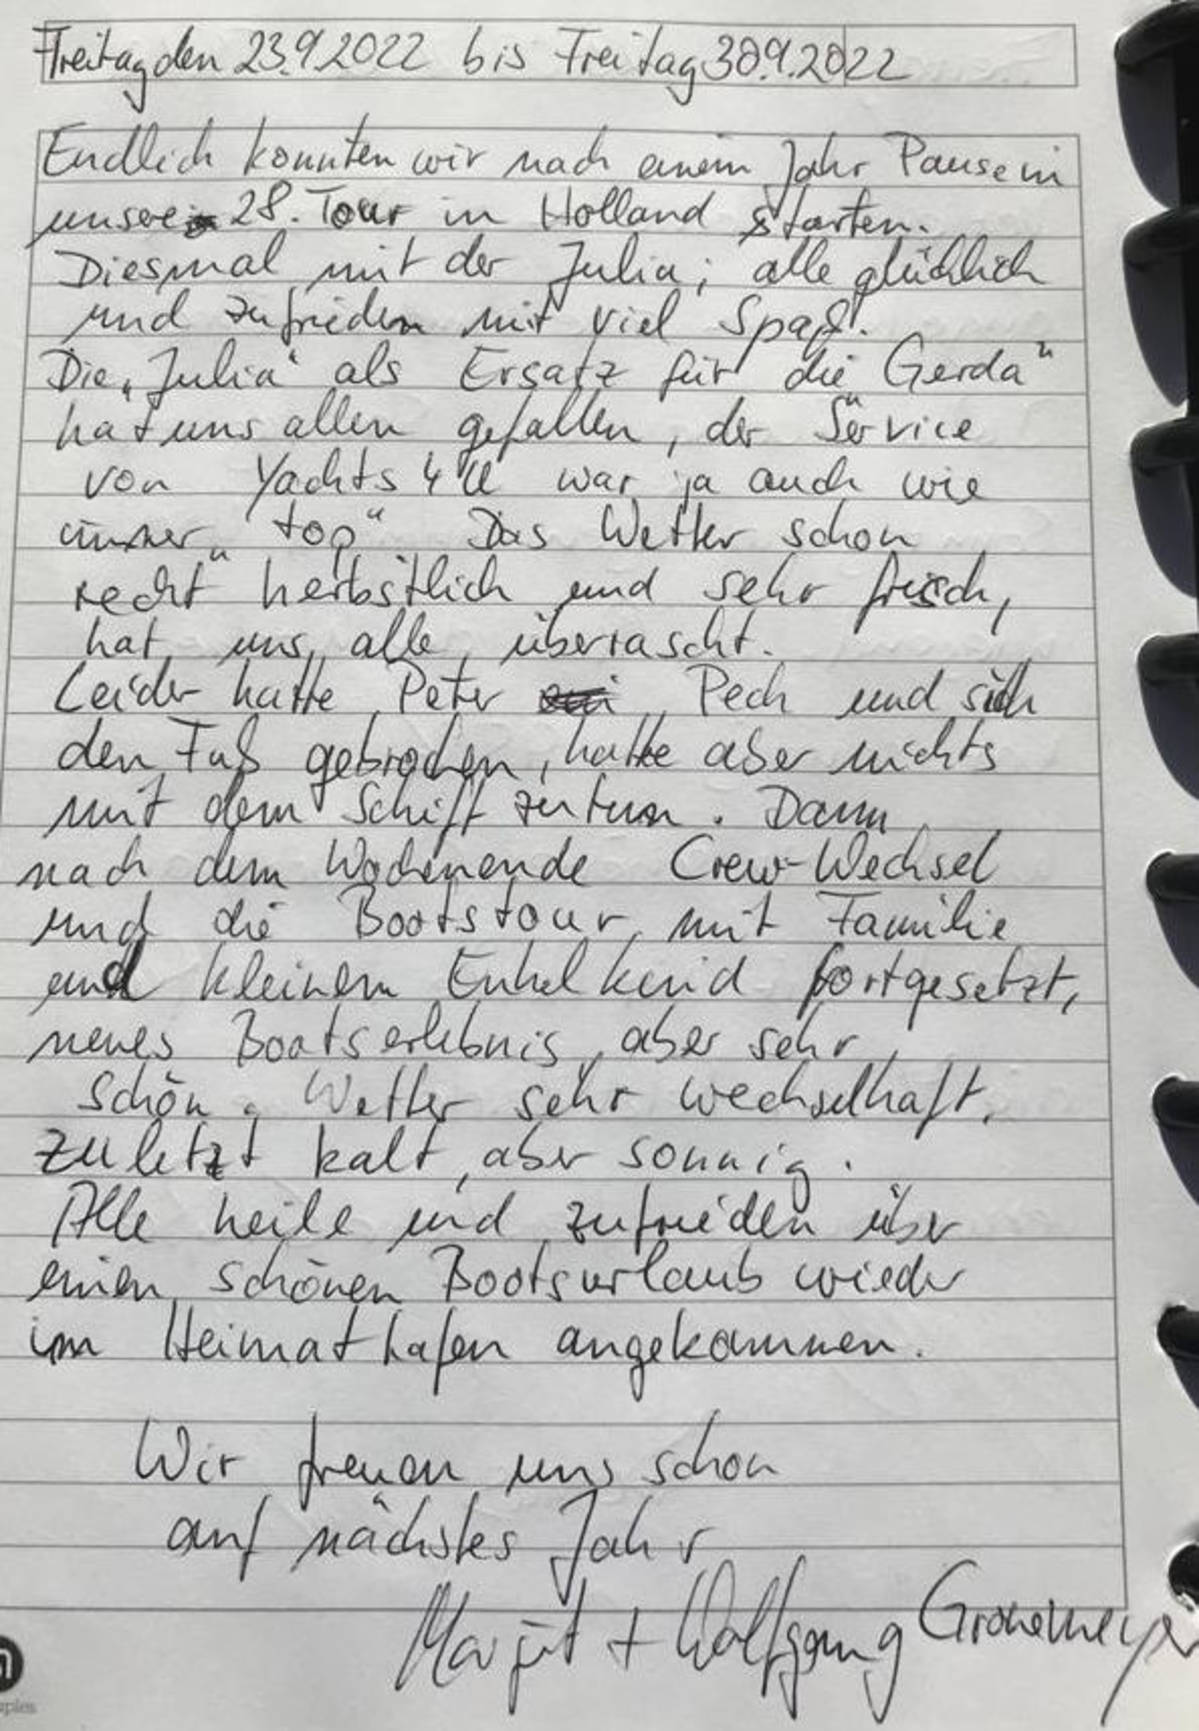 Freitag den 23.9.2022 bis Freitag 30.9.2022
Endlich konnten wir nach einem Jahr Pause in
unsere 28. Tour in Holland starten.
Diesmal mit der Julia; alle glücklich
und zufrieden mit viel Spaß.
Die „Julia“ als Ersatz für die „Gerda“
hat uns allen gefallen, der Service
von Yachts 4 U war ja auch wie
immer „top“ Das Wetter schon
recht herbstlich und sehr frisch,
hat uns alle überrascht.
Leider hatte Peter Pech und sich
den Fuß gebrochen, hatte aber nichts
mit dem Schiff zu tun. Dann
nach dem Wochenende Crew-Wechsel
und die Bootstour mit Familie
und kleinem Enkelkind fortgesetzt,
neues Bootserlebnis, aber sehr
schön. Wetter sehr wechselhaft,
zuletzt kalt, aber sonnig.
Alle heile und zufrieden über
einen schönen Bootsurlaub wieder
im Heimathafen angekommen.
Wir freuen uns schon
auf nächstes Jahr
Margit + Wolfgang Gronemeyer